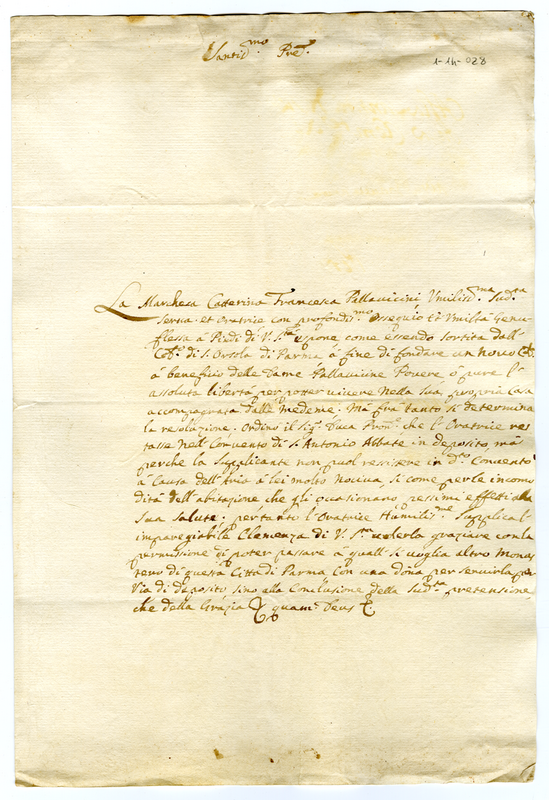 Santis.mo Pre.
1-14-028
La Marchesa Catterina Francesca Pallavicini Umilis.ma Sud.ta
Serva et Oratrice con profondis.mo Ossequio et Umiltà Genu
flessa á Piedi di V. S.tà espone come essendo sortita dall
Col.o di S. Orsola di Parma á fine di fondare un novo Col.o
á beneficio delle Dame Pallavicine Povere ó pure l'
assoluta libertà per potter vivere nella sua propria Casa
accompagnata dalle medeme. Má frà tanto si determina
la resolutione. Ordinò il Sig. Duca Pron.e che l'Oratrice res
tasse nell Convento di S. Antonio Abbate in deposito má
perche la Supplicante non puol ressistere in d.o Convento
á Causa dell'Aria á lei molto nociva si come per le incomo
dità dell'abitazione che gli cagionano pessimi effetti alla
sua salute; pertanto l'Oratrice Humilis.me supplica l'
impareggiabile Clemenza di V. S.tà volerla graziare con la
permissione di poter passare á quall si voglia altro Monas
tero di questa Città di Parma con una dona per servirla per
Via di deposito sino alla Conclusione della Sud.ta pretensione
che della Grazia quam Deus